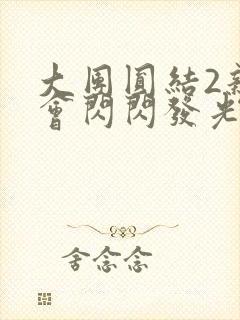 大團圓結2新
會閃閃發光
舍念念